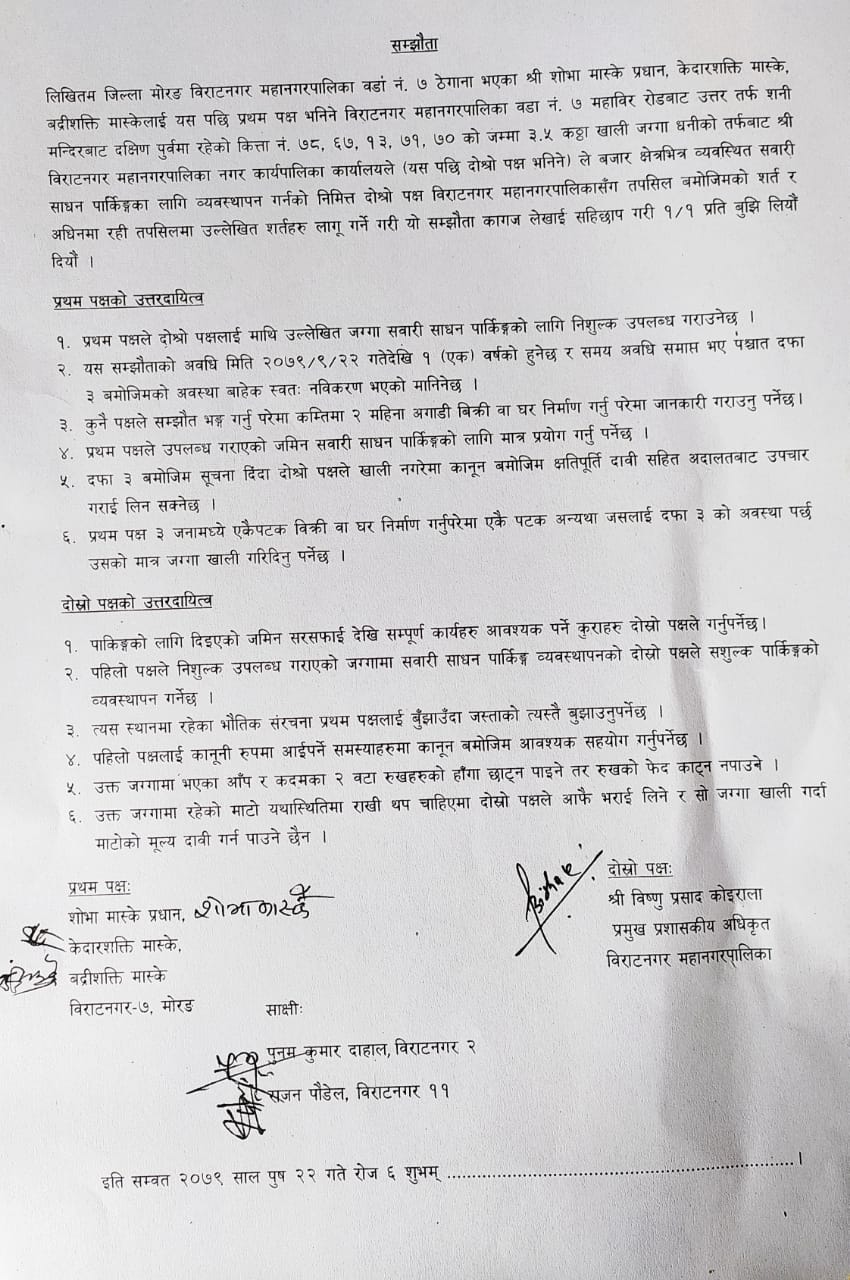 सम्झौता
लिखितम जिल्ला मोरङ विराटनगर महानगरपालिका वडां नं. ७ ठेगाना भएका श्री शोभा मास्के प्रधान, केदारशक्ति मास्के,
बद्रीशक्ति मास्केलाई यस पछि प्रथम पक्ष भनिने विराटनगर महानगरपालिका वडा नं. ७ महाविर रोडबाट उत्तर तर्फ शनी
मन्दिरबाट दक्षिण पुर्वमा रहेको कित्ता नं. ७८, ६७, १३, ७१, ७० को जम्मा ३.५ कठ्ठा खाली जग्गा धनीको तर्फबाट श्री
विराटनगर महानगरपालिका नगर कार्यपालिका कार्यालयले (यस पछि दोश्रो पक्ष भनिने) ले बजार क्षेत्रभित्र व्यवस्थित सवारी
साधन पार्किङ्गका लागि व्यवस्थापन गर्नको निमित्त दोश्रो पक्ष विराटनगर महानगरपालिकासँग तपसिल बमोजिमको शर्त र
अधिनमा रही तपसिलमा उल्लेखित शर्तहरु लागू गर्ने गरी यो सम्झौता कागज लेखाई सहिछाप गरी १/१ प्रति बुझि लियौं
दियौं ।
प्रथम पक्षको उत्तरदायित्व
१. प्रथम पक्षले दोश्रो पक्षलाई माथि उल्लेखित जग्गा सवारी साधन पार्किङ्गको लागि निशुल्क उपलब्ध गराउनेछ ।
२. यस सम्झौताको अवधि मिति २०७९/९/२२ गतेदेखि १ (एक) वर्षको हुनेछ र समय अवधि समाप्त भए पंश्चात दफा
३ बमोजिमको अवस्था बाहेक स्वतः नविकरण भएको मानिनेछ ।
३. कुनै पक्षले सम्झौत भङ्ग गर्नु परेमा कम्तिमा २ महिना अगाडी बिक्री वा घर निर्माण गर्नु परेमा जानकारी गराउनु पर्नेछ।
४. प्रथम पक्षले उपलब्ध गराएको जमिन सवारी साधन पार्किङ्गको लागि मात्र प्रयोग गर्नु पर्नेछ ।
५. दफा ३ बमोजिम सूचना दिंदा दोश्रो पक्षले खाली नगरेमा कानून बमोजिम क्षतिपूर्ति दावी सहित अदालतबाट उपचार
गराई लिन सक्नेछ ।
६. प्रथम पक्ष ३ जनामध्ये एकैपटक विक्री वा घर निर्माण गर्नुपरेमा एकै पटक अन्यथा जसलाई दफा ३ को अवस्था पर्छ
उसको मात्र जग्गा खाली गरिदिनु पर्नेछ ।
दोस्रो पक्षको उत्तरदायित्व
१. पाकिङ्गको लागि दिइएको जमिन सरसफाई देखि सम्पूर्ण कार्यहरु आवश्यक पर्ने कुराहरु दोस्रो पक्षले गर्नुपर्नेछ।
२. पहिलो पक्षले निशुल्क उपलब्ध गराएको जग्गामा सवारी साधन पार्किङ्ग व्यवस्थापनको दोस्रो पक्षले सशुल्क पार्किङ्गको
व्यवस्थापन गर्नेछ ।
३. त्यस स्थानमा रहेका भौतिक संरचना प्रथम पक्षलाई बुँझाउँदा जस्ताको त्यस्तै बुझाउनुपर्नेछ ।
४. पहिलो पक्षलाई कानूनी रुपमा आईपर्ने समस्याहरुमा कानून बमोजिम आवश्यक सहयोग गर्नुपर्नेछ ।
५. उक्त जग्गामा भएका आँप र कदमका २ वटा रुखहरुको हाँगा छाट्न पाइने तर रुखको फेद काट्न नपाउने ।
६. उक्त जग्गामा रहेको माटो यथास्थितिमा राखी थप चाहिएमा दोस्रो पक्षले आफै भराई लिने र सो जग्गा खाली गर्दा
माटोको मूल्य दावी गर्न पाउने छैन ।
प्रथम पक्षः
शोभा मास्के प्रधान, शोभा मास्के
केदारशक्ति मास्के,
बद्रीशक्ति मास्के
विराटनगर-७, मोरङ
दोस्रो पक्षः
श्री विष्णु प्रसाद कोइराला
प्रमुख प्रशासकीय अधिकृत
विराटनगर महानगरपालिका
साक्षीः
पुनम कुमार दाहाल, विराटनगर २
सृजन पौडेल, विराटनगर ११
इति सम्वत २०७९ साल पुष २२ गते रोज ६ शुभम् ..........................................................।